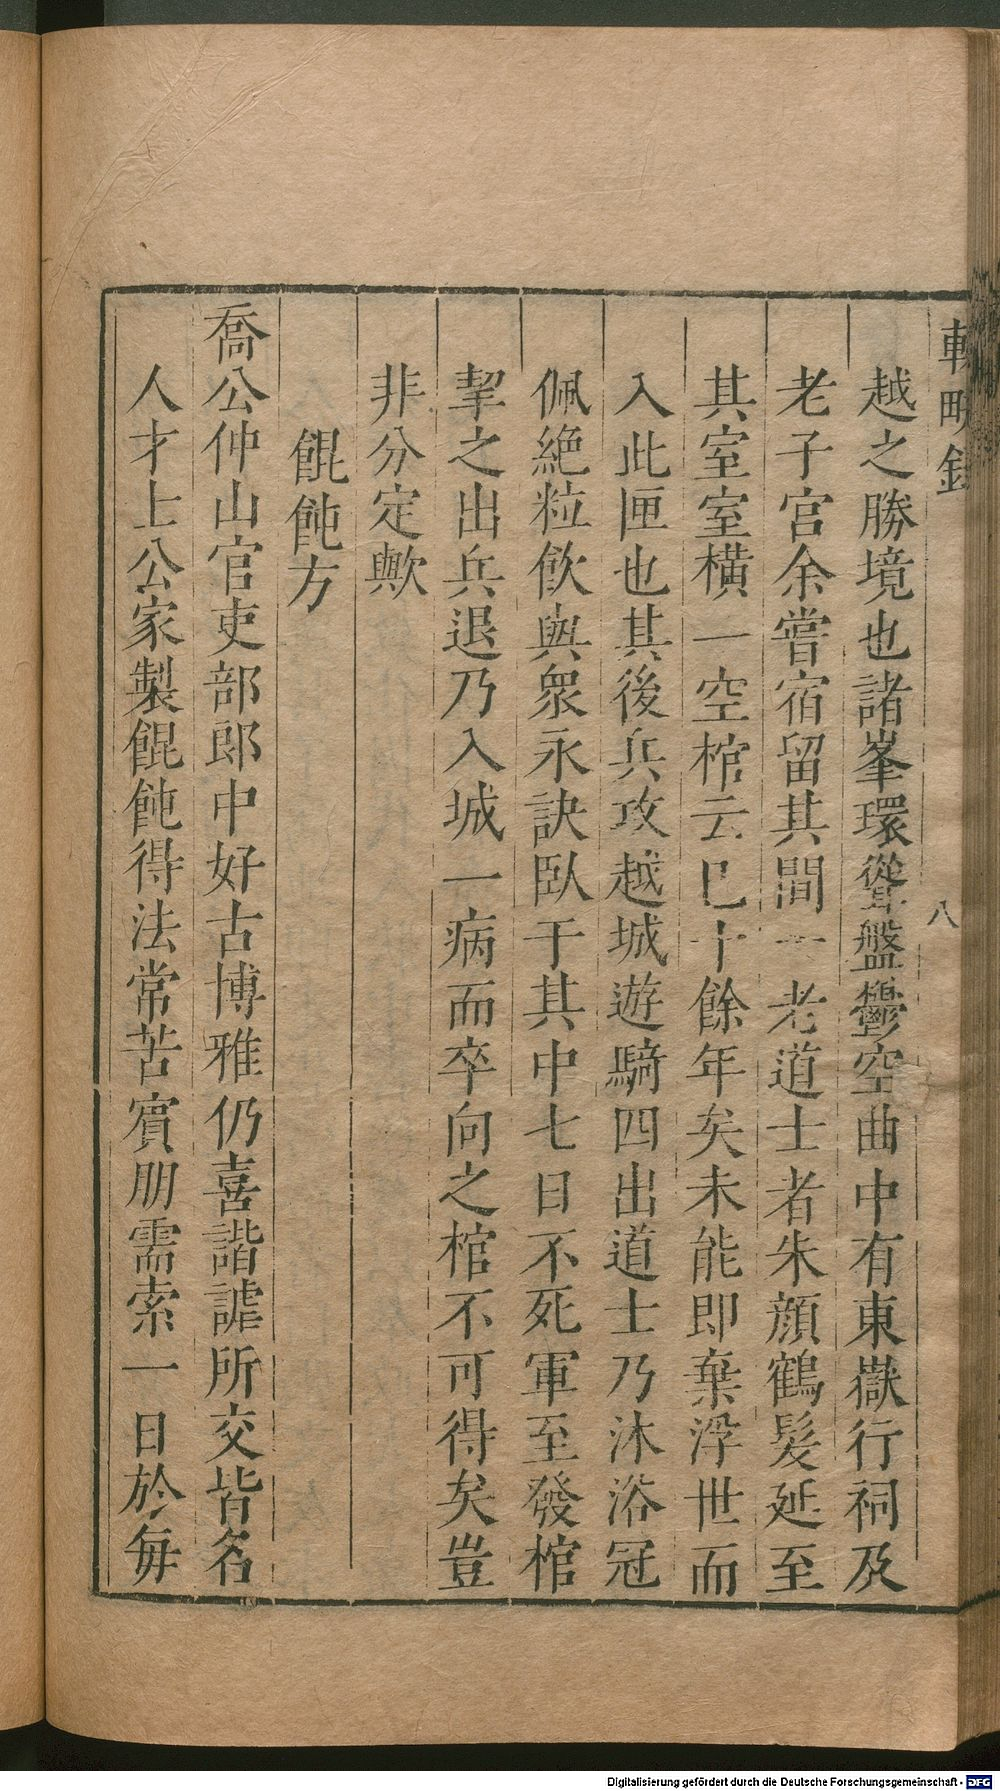 輟畊錄
八
越之勝境也諸峯環聳盤鬱空曲中有東嶽行祠及
老子宮余嘗宿留其間一老道士者朱顔鶴髮延至
其室室横一空棺云巳十餘年矣未能即棄浮世而
入此匣也其後兵攻越城遊騎四出道士乃沐浴冠
佩絶粒飲與衆永訣臥于其中七日不死軍至發棺
挈之出兵退乃入城一病而卒向之棺不可得矣豈
非分定歟
餛飩方
喬公仲山官吏部郎中好古博雅仍喜諧謔所交皆名
人才士公家製餛飩得法常苦賓朋需索一日於毎
Digitalisierung gefördert durch die Deutsche Forschungsgemeinschaft - DFG